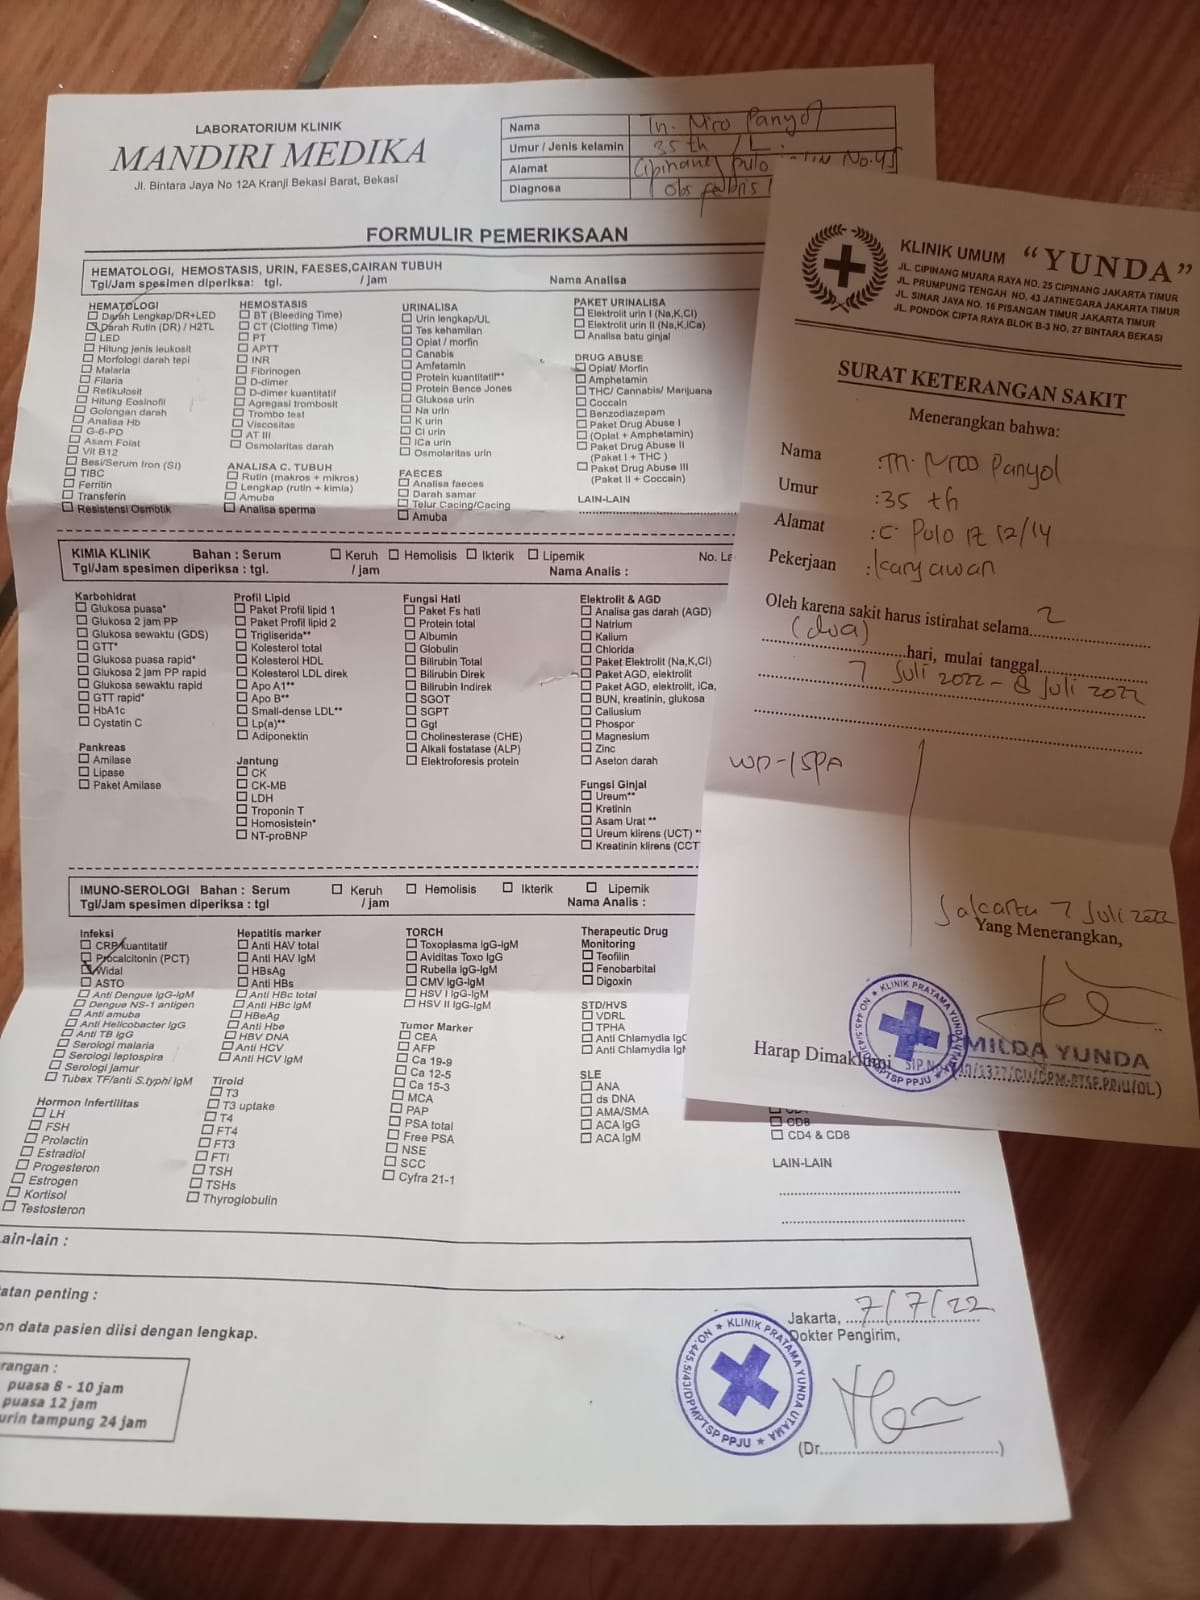 LABORATORIUM KLINIK
MANDIRI MEDIKA
Jl. Bintara Jaya No 12A Kranji Bekasi Barat, Bekasi
Nama Tn.
Umur / Jenis kelamin 35 th / L.
Alamat Cipinang Pulo No. 45
Diagnosa Obs febris
FORMULIR PEMERIKSAAN
HEMATOLOGI, HEMOSTASIS, URIN, FAESES,CAIRAN TUBUH
Tgl/Jam spesimen diperiksa: tgl. / jam Nama Analisa
HEMATOLOGI
Darah Lengkap/DR+LED
Darah Rutin (DR) / H2TL
LED
Hitung jenis leukosit
Morfologi darah tepi
Malaria
Filaria
Retikulosit
Hitung Eosinofil
Golongan darah
Analisa Hb
G-6-PD
Asam Folat
Vit B12
Besi/Serum Iron (SI)
TIBC
Ferritin
Transferin
Resistensi Osmotik
HEMOSTASIS
BT (Bleeding Time)
CT (Clotting Time)
PT
APTT
INR
Fibrinogen
D-dimer
D-dimer kuantitatif
Agregasi trombosit
Trombo test
Viscositas
AT III
Osmolaritas darah
ANALISA C. TUBUH
Rutin (makros + mikros)
Lengkap (rutin + kimia)
Amuba
Analisa sperma
URINALISA
Urin lengkap/UL
Tes kehamilan
Opiat / morfin
Canabis
Amfetamin
Protein kuantitatif**
Protein Bence Jones
Glukosa urin
Na urin
K urin
Cl urin
ICa urin
Osmolaritas urin
FAECES
Analisa faeces
Darah samar
Telur Cacing/Cacing
Amuba
PAKET URINALISA
Elektrolit urin I (Na,K,Cl)
Elektrolit urin II (Na,K,ICa)
Analisa batu ginjal
DRUG ABUSE
Opiat/ Morfin
Amphetamin
THC/ Cannabis/ Marijuana
Coccain
Benzodiazepam
Paket Drug Abuse I
(Opiat + Amphetamin)
Paket Drug Abuse II
(Paket I + THC )
Paket Drug Abuse III
(Paket II + Coccain)
LAIN-LAIN
KIMIA KLINIK Bahan : Serum Keruh Hemolisis Ikterik Lipemik No. La
Tgl/Jam spesimen diperiksa : tgl. / jam Nama Analis :
Karbohidrat
Glukosa puasa*
Glukosa 2 jam PP
Glukosa sewaktu (GDS)
GTT*
Glukosa puasa rapid*
Glukosa 2 jam PP rapid
Glukosa sewaktu rapid
GTT rapid*
HbA1c
Cystatin C
Pankreas
Amilase
Lipase
Paket Amilase
Profil Lipid
Paket Profil lipid 1
Paket Profil lipid 2
Trigliserida**
Kolesterol total
Kolesterol HDL
Kolesterol LDL direk
Apo A1**
Apo B**
Small-dense LDL**
Lp(a)**
Adiponektin
Jantung
CK
CK-MB
LDH
Troponin T
Homosistein*
NT-proBNP
Fungsi Hati
Paket Fs hati
Protein total
Albumin
Globulin
Bilirubin Total
Bilirubin Direk
Bilirubin Indirek
SGOT
SGPT
Ggt
Cholinesterase (CHE)
Alkali fostatase (ALP)
Elektroforesis protein
Elektrolit & AGD
Analisa gas darah (AGD)
Natrium
Kalium
Chlorida
Paket Elektrolit (Na,K,Cl)
Paket AGD, elektrolit
Paket AGD, elektrolit, iCa,
BUN, kreatinin, glukosa
Caliusium
Phospor
Magnesium
Zinc
Aseton darah
Fungsi Ginjal
Ureum**
Kretinin
Asam Urat **
Ureum klirens (UCT) **
Kreatinin klirens (CCT
IMUNO-SEROLOGI Bahan : Serum Keruh Hemolisis Ikterik Lipemik
Tgl/Jam spesimen diperiksa : tgl / jam Nama Analis :
Infeksi
CRP kuantitatif
Procalcitonin (PCT)
Widal
ASTO
Anti Dengue IgG-IgM
Dengue NS-1 antigen
Anti amuba
Anti Helicobacter IgG
Anti TB IgG
Serologi malaria
Serologi leptospira
Serologi jamur
Tubex TF/anti S.typhi IgM
Hormon Infertilitas
LH
FSH
Prolactin
Estradiol
Progesteron
Estrogen
Kortisol
Testosteron
Hepatitis marker
Anti HAV total
Anti HAV IgM
HBsAg
Anti HBs
Anti HBc total
Anti HBc IgM
HBeAg
Anti Hbe
HBV DNA
Anti HCV
Anti HCV IgM
Tiroid
T3
T3 uptake
T4
FT4
FT3
FTI
TSH
TSHs
Thyroglobulin
TORCH
Toxoplasma IgG-IgM
Aviditas Toxo IgG
Rubella IgG-IgM
CMV IgG-IgM
HSV I IgG-IgM
HSV II IgG-IgM
Tumor Marker
CEA
AFP
Ca 19-9
Ca 12-5
Ca 15-3
MCA
PAP
PSA total
Free PSA
NSE
SCC
Cyfra 21-1
Therapeutic Drug
Monitoring
Teofilin
Fenobarbital
Digoxin
STD/HVS
VDRL
TPHA
Anti Chlamydia IgG
Anti Chlamydia IgM
SLE
ANA
ds DNA
AMA/SMA
ACA IgG
ACA IgM
CD8
CD4 & CD8
LAIN-LAIN
ain-lain :
atan penting :
on data pasien diisi dengan lengkap.
rangan :
puasa 8 - 10 jam
puasa 12 jam
urin tampung 24 jam
Jakarta, 7/7/22.
Dokter Pengirim,
KLINIK PRATAMA YUNDA UTAMA
NO.445.5/43/DPMPTSP PPJU
(Dr. )
KLINIK UMUM "YUNDA"
JL. CIPINANG MUARA RAYA NO. 25 CIPINANG JAKARTA TIMUR
JL. PRUMPUNG TENGAH NO. 43 JATINEGARA JAKARTA TIMUR
JL. SINAR JAYA NO. 16 PISANGAN TIMUR JAKARTA TIMUR
JL. PONDOK CIPTA RAYA BLOK B-3 NO. 27 BINTARA BEKASI
SURAT KETERANGAN SAKIT
Menerangkan bahwa:
Nama : Tn.
Umur : 35 th
Alamat : C. Pulo 12/14
Pekerjaan : karyawan
Oleh karena sakit harus istirahat selama 2
(dua) hari, mulai tanggal
7 Juli 2022 - 8 Juli 2022
WD - ISPA
Jakarta 7 Juli 2022
Yang Menerangkan,
KLINIK PRATAMA YUNDA UTAMA
MILDA YUNDA
Harap Dimaklumi